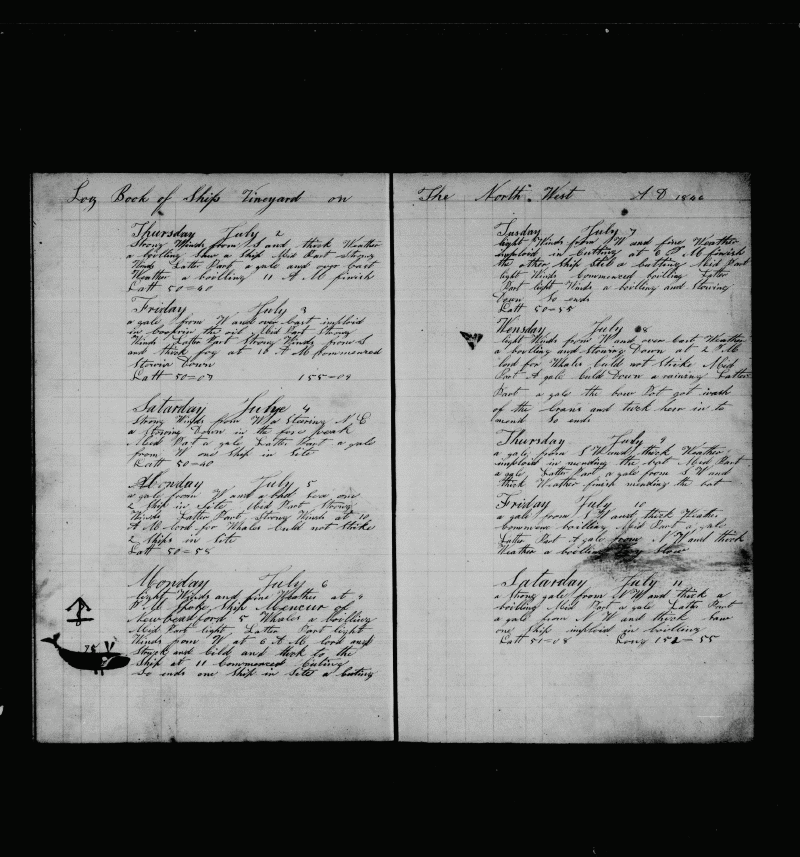 Log Book of Ship Vineyard on
Thursday July 2
Strong Winds from S and thick Weather
a boiling Saw a Ship Mid Part strong
Winds Latter Part a gale and over Cast
Weather a boilling 11 A M finish
Latt 50=40
Friday July 3
a gale from W and over Cast imploid
in the oil Mid Part Strong
Winds Latter Part Strong Winds from S
and thick fog at 10 A M Commenced
Stowin Down
Latt 50=07 155=09
Saturday July 4
Strong Winds from W a Stearing N E
a Stowing Down in the fore peak
Mid Part a gale Latter Part a gale
from W one Ship in Site
Latt 50=40
Monday July 5
a gale from W and a bad Sea one
2 Ship in Site Mid Part Strong
Winds Latter Part Strong Winds at 10
A M lord for Whales Culd not Strike
2 Ships in Site
Latt 50=58
Monday July 6
light Winds and fine Weather at 4
P M Spoke Ship Mencur of
Newbeadford 5 Whales a boilling
Mid Part light Latter Part light
Winds from W at 6 A M lord and
Struck and Cild and took to the
Ship at 11 Commenced Cuting
So ends one Ship in Site a Cuting
75
The North West A D 1846
Tusday July 7
light Winds from W and fine Weather
imploid in Cutting at 6 P M finish
the other Ship Still a Cutting Mid Part
light Winds Commenced boilling Latter
Part light Winds a boilling and Stowing
Down So ends
Latt 50=55
Wensday July 8
light Winds from W and over Cast Weather
a boilling and Stowing Down at 2 P M
lord for Whales Culd not Strike Mid
Part A gale Culd Down a raining Latter
Part a gale the bow Bot got wash
of the Crans and tuck hear in to
mend So ends
Thursday July 9
a gale from S W and thick Weather
imploid in mending the bot Mid Part
a gale Latter Part a gale from S W and
thick Weather finish mending the bot
Friday July 10
a gale from S W and thick Weather
Commence boilling Mid Part a gale
Latter Part A gale from N W and thick
Weather a boilling
Saturday July 11
a Strong gale from N W and thick a
boilling Mid Part a gale Latter Part
a gale from N W and thick Saw
one Ship imploid in boilling
Latt 51=08 Long 152=55